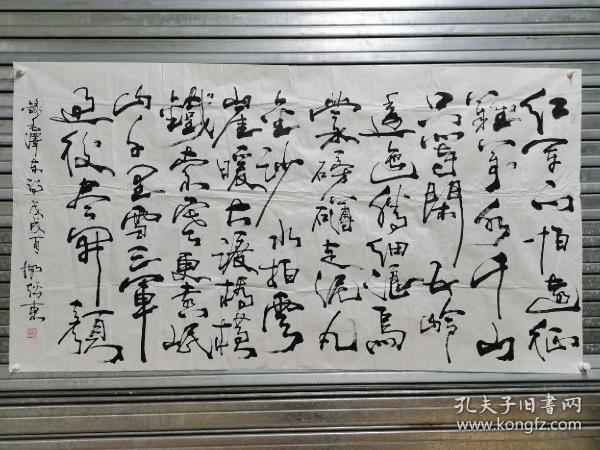 红军不怕远征
難万水千山
只等閑 五岭
逶迤腾细浪烏
蒙磅礴走泥丸
金沙 水拍雲
崖暖大渡橋横
鐵索寒更喜岷
山千里雪三軍
過後尽開顔
錄毛澤东詞戊戌夏
孔夫子旧书网
www.kongfz.com